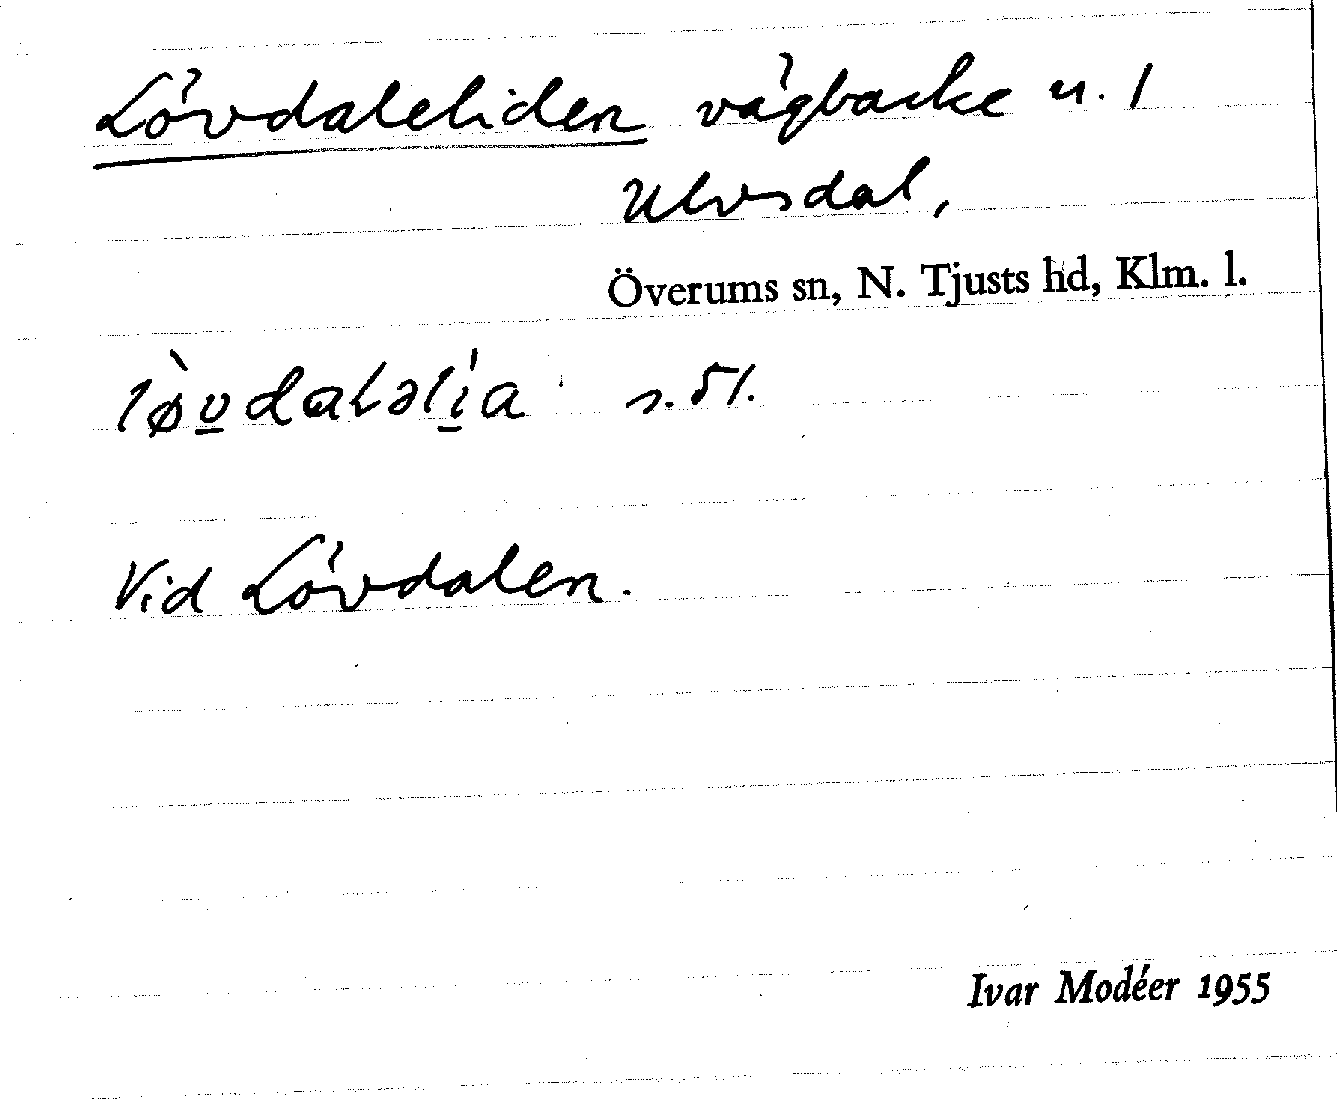 Lövdaleliden vägbacke u. 1
Ulvsdal,
Överums sn, N. Tjusts hd, Klm. l.
lø̀v̲daləlí̲a s. 51.
Vid Lövdalen.
Ivar Modéer 1955